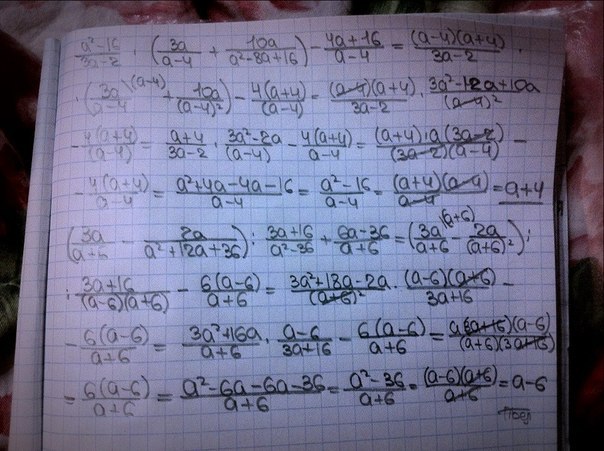 (a²-16)/(3a-2) · (3a/(a-4) + 10a/(a²-8a+16)) - (4a+16)/(a-4) = ((a-4)(a+4))/(3a-2) ·
· (3a/(a-4) \(a-4) + 10a/(a-4)²) - 4(a+4)/(a-4) = ((a-4)(a+4))/(3a-2) · (3a²-12a+10a)/(a-4)²
- 4(a+4)/(a-4) = (a+4)/(3a-2) · (3a²-2a)/(a-4) - 4(a+4)/(a-4) = ((a+4)·a(3a-2))/((3a-2)(a-4)) -
- 4(a+4)/(a-4) = (a²+4a-4a-16)/(a-4) = (a²-16)/(a-4) = ((a+4)(a-4))/(a-4) = a+4
(3a/(a+6) - 2a/(a²+12a+36)) : (3a+16)/(a²-36) + (6a-36)/(a+6) = (3a/(a+6) \(a+6) - 2a/(a+6)²) :
: (3a+16)/((a-6)(a+6)) - 6(a-6)/(a+6) = (3a²+18a-2a)/(a+6)² · ((a-6)(a+6))/(3a+16) -
- 6(a-6)/(a+6) = (3a²+16a)/(a+6) · (a-6)/(3a+16) - 6(a-6)/(a+6) = (a(3a+16)(a-6))/((a+6)(3a+16))
= 6(a-6)/(a+6) = (a²-6a-6a-36)/(a+6) = (a²-36)/(a+6) = ((a-6)(a+6))/(a+6) = a-6